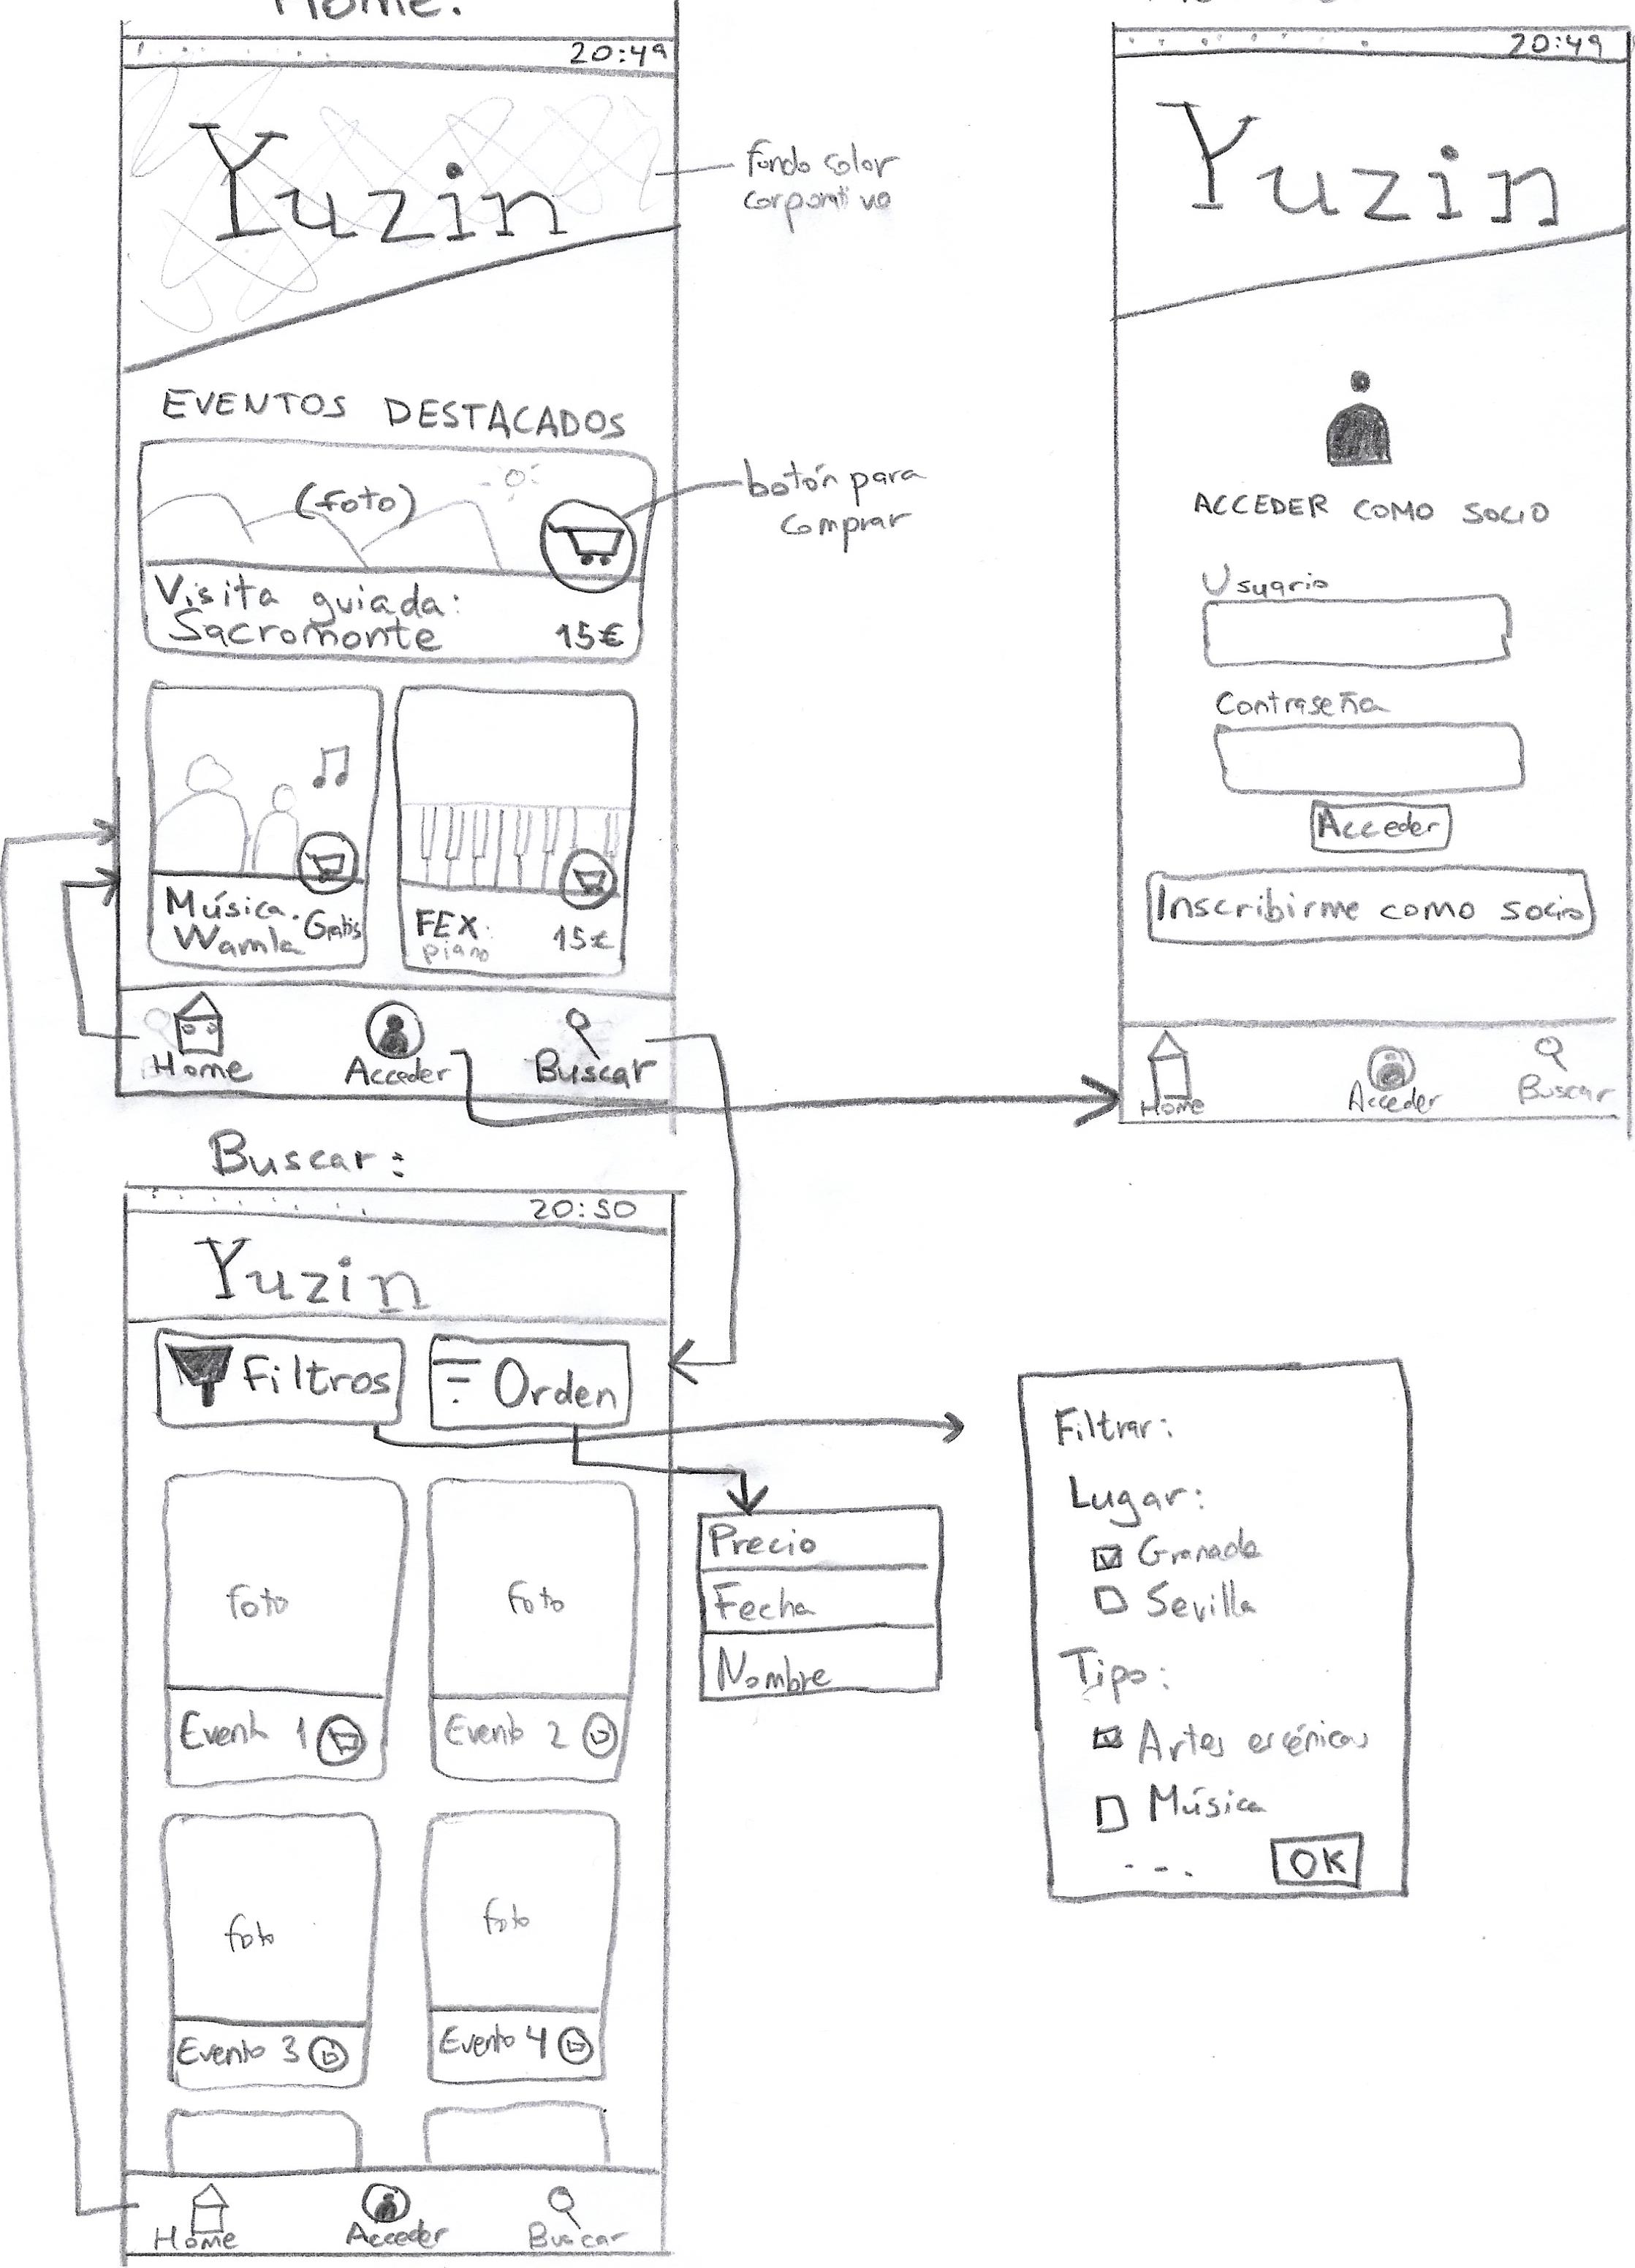 Home:
20:49
Yuzin
fondo color
corporativo
EVENTOS DESTACADOS
(foto)
botón para
comprar
Visita guiada:
Sacromonte 15€
Música.
Wamla Gratis
FEX:
piano 15€
Home Acceder Buscar
20:49
Yuzin
ACCEDER COMO SOCIO
Usuario
Contraseña
Acceder
Inscribirme como socio
Home Acceder Buscar
Buscar:
20:50
Yuzin
Filtros Orden
foto foto
Evento 1 Evento 2
foto foto
Evento 3 Evento 4
Home Acceder Buscar
Precio
Fecha
Nombre
Filtrar:
Lugar:
Granada
Sevilla
Tipo:
Artes escénicas
Música
...
OK